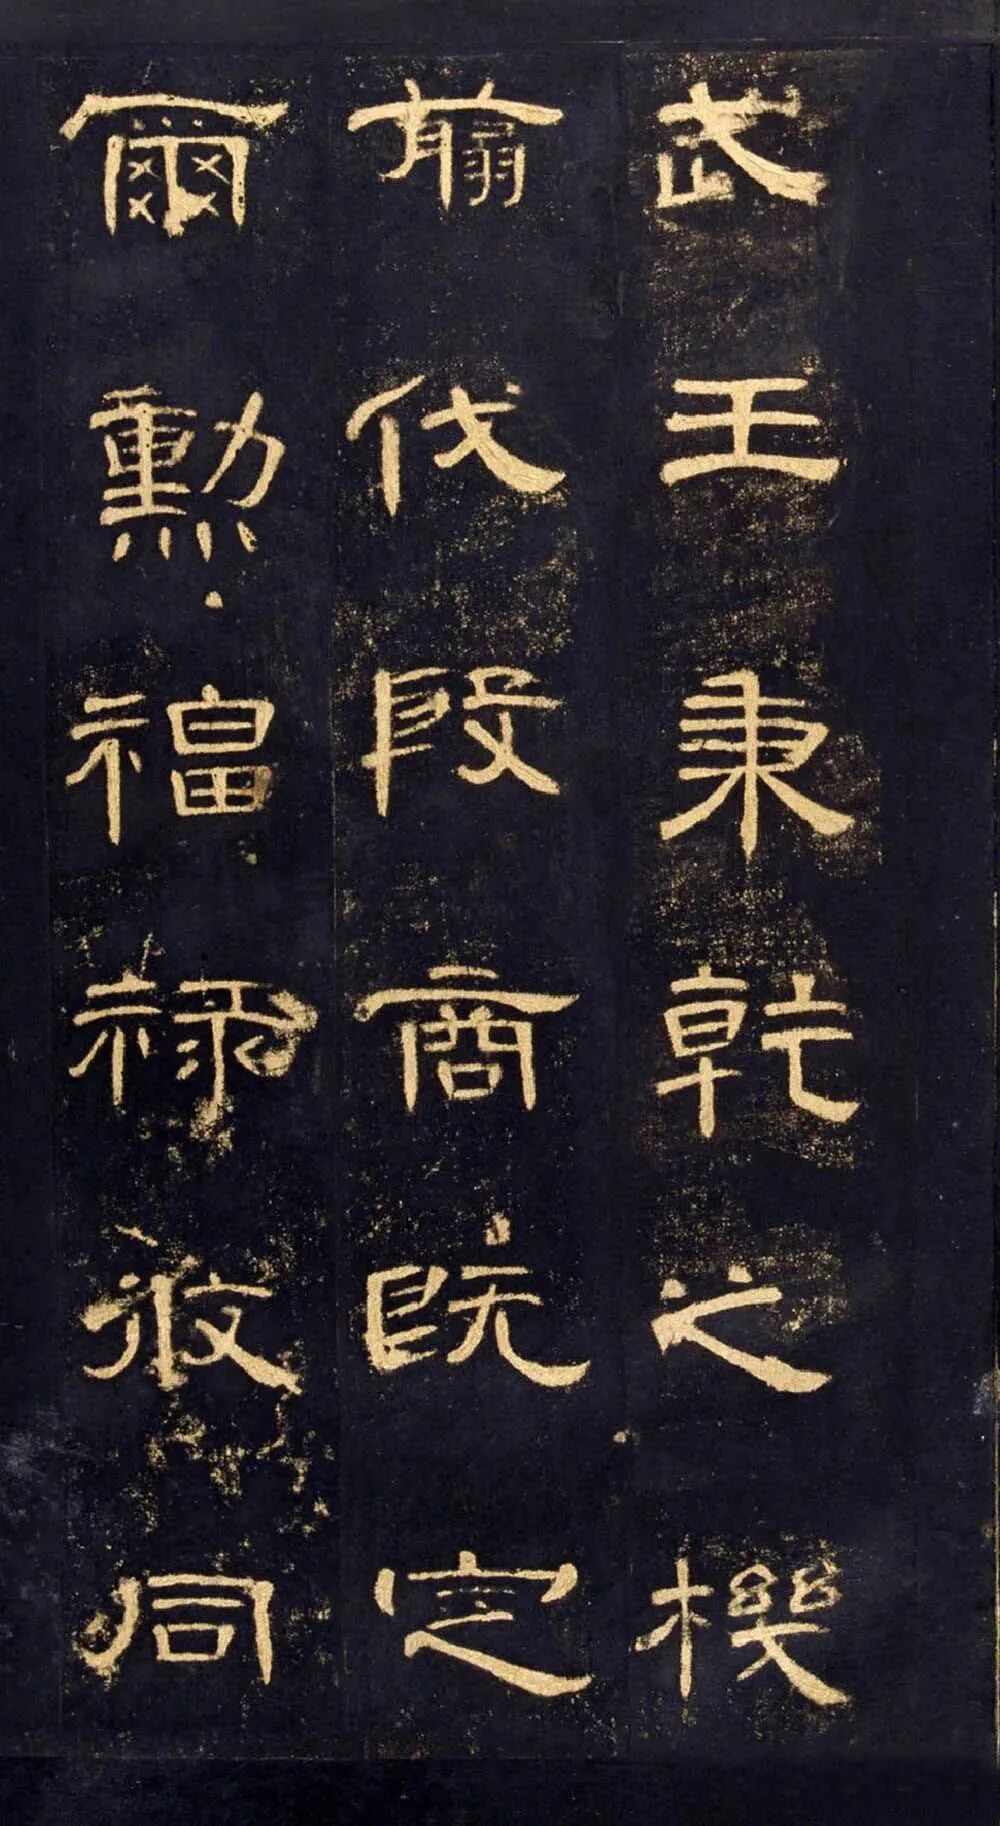 武王秉乾之機
翦伐殷商既定
爾勲福祿攸同